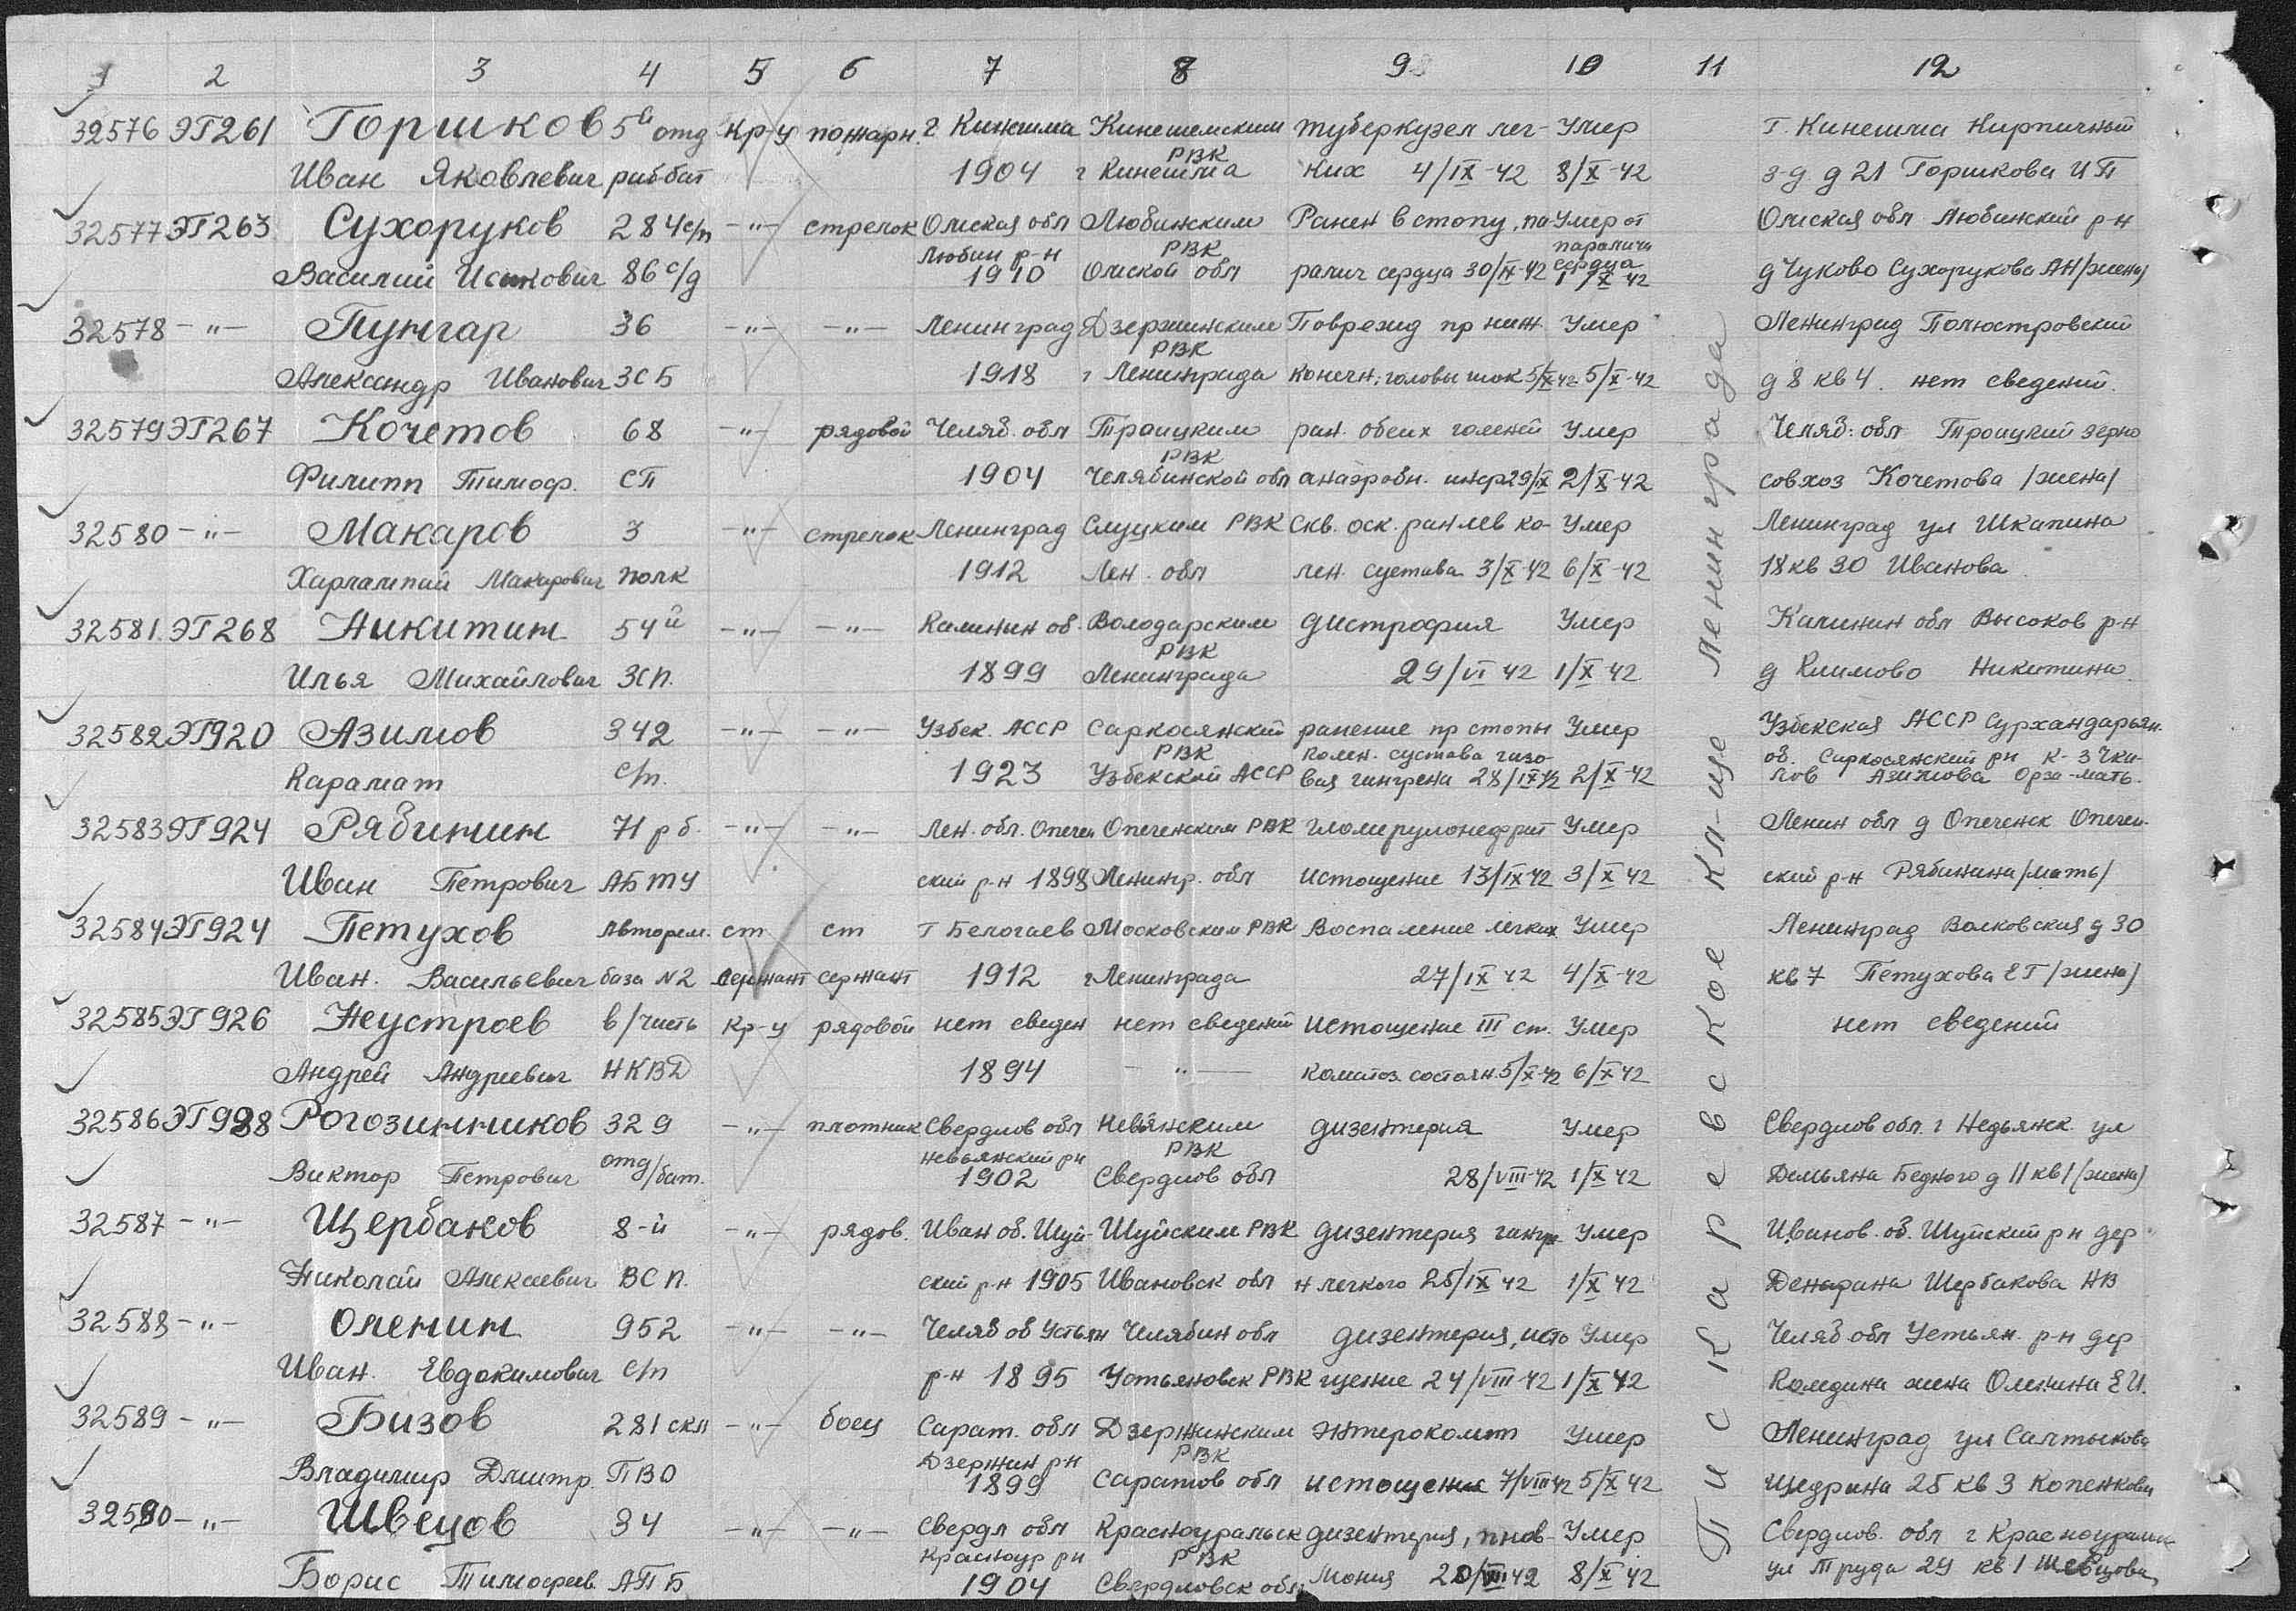 1 2 3 4 5 6 7 8 9 10 11 12
32576 ЭГ261 Горшков 5й отд кр-ц пожарн. г. Кинешма Кинешемским туберкулез лег- Умер г. Кинешма Кирпичный
РВК
Иван Яковлевич раббат 1904 г Кинешма ких 4/IX-42 8/X-42 з-д д 21 Горшкова И П
32577 ЭГ263 Сухоруков 284 с/п -"- стрелок Омская обл Любинским Ранен в стопу, па- Умер от Омская обл Любинский р-н
Любин р-н РВК паралича
сердца
Василий Исакович 86 с/д 1910 Омской обл ралич сердца 30/IX-42 1/X 42 д Чуково Сухорукова АН /жена/
32578 -"- Пунгар 36 -"- -"- Ленинград Дзержинским Поврежд пр ниж. Умер Ленинград Полюстровский
РВК
Александр Иванович ЗСБ 1918 г Ленинграда конечн; головы шок 5/X-42 5/X-42 д 8 кв 4. нет сведений.
32579 ЭГ267 Кочетов 68 -"- рядовой Челяб. обл Троицким ран. обеих голеней Умер Челяб. обл Троицкий зерно
РВК
Филипп Тимоф. СП 1904 Челябинской обл анаэробн. инф 29/IX 2/X-42 совхоз Кочетова /жена/
32580 -"- Макаров 3 -"- стрелок Ленинград Слуцким РВК Скв. оск. ран лев ко- Умер Ленинград ул Шкапина
Харлампий Макарович полк 1912 Лен. обл лен. сустава 3/X-42 6/X-42 18 кв 30 Иванова
32581 ЭГ268 Никитин 54й -"- -"- Калинин об. Володарским дистрофия Умер Калинин обл Высоков р-н
РВК
Илья Михайлович ЗСП. 1899 Ленинграда 29/VI 42 1/X 42 д Климово Никитина
32582 ЭГ920 Азимов 342 -"- -"- Узбек. АССР Саркосянский ранение пр стопы Умер Узбекская АССР Сурхандарьян.
РВК колен. сустава газо- об. Саркосянский рн к-з Чка-
Карамат с/п. 1923 Узбекской АССР вая гангрена 28/IX 42 2/X-42 лов Азимова Орза-мать.
32583 ЭГ924 Рябинин 71 рб. -"- -"- Лен. обл. Опечен Опеченским РВК Гломерулонефрит Умер Ленин обл д Опеченск Опечен-
Иван Петрович АБТУ ский р-н 1898 Ленингр. обл Истощение 13/IX 42 3/X 42 ский р-н Рябинина /мать/
32584 ЭГ924 Петухов Авторем. ст ст г Белогаев Московским РВК Воспаление легких Умер Ленинград Волковская д 30
Иван. Васильевич база N2 сержант сержант 1912 г Ленинграда 27/IX 42 4/X-42 кв 7 Петухова ЕГ /жена/
32585 ЭГ926 Неустроев в/часть кр-ц рядовой нет сведен нет сведений Истощение III ст. Умер нет сведений
Андрей Андреевич НКВД 1894 -"- коматоз. состоян. 5/X-42 6/X 42
32586 ЭГ928 Рогозинников 329 -"- плотник Свердлов обл Невьянским дизентерия Умер Свердлов обл. г Недьянск ул
Невьянский рн РВК
Виктор Петрович отд/бат. 1902 Свердлов обл 28/VIII-42 1/X-42 Демьяна Бедного д 11 кв 1 (жена)
32587 -"- Щербаков 8-й -"- рядов. Иван об. Шуй- Шуйским РВК дизентерия гангре- Умер Иванов. об. Шуйский рн дер
Николай Алексеевич ВСП. ский р-н 1905 Ивановск обл н легкого 25/IX 42 1/X 42 Щербакова НВ
32588 -"- Оленин 952 -"- -"- Челяб об Устьян Челябин обл дизентерия, исто Умер Челяб обл Устьян. р-н дер
Иван. Евдокимович с/п р-н 1895 Устьяновск РВК щение 24/VIII-42 1/X 42 Коледина жена Оленина ЕИ.
32589 -"- Бизов 281 скл -"- боец Сарат. обл Дзержинским Энтероколит Умер Ленинград ул Салтыкова
Дзержин рн РВК
Владимир Дмитр. ПВО 1899 Саратов обл истощение 7/VIII 42 5/X 42 Щедрина 25 кв 3 Копенкова
32590 -"- Швецов 34 -"- -"- Свердл обл Красноуральск дизентерия, пнев- Умер Свердлов. обл г Красноуральск
Красноур рн РВК
Борис Тимофеев. АПБ 1904 Свердловск обл мония 20/VIII 42 8/X 42 ул Труда 29 кв 1 Швецова
Пискаревское кл-ще Ленинграда